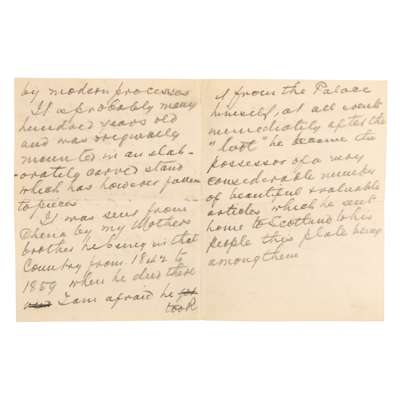 by modern processes
It is probably many
hundred years old
and was originally
mounted in an elab-
-orately carved stand
which has however fallen
to pieces
It was sent from
China by my Mothers
brother he being in that
Country from 1842 to
1859 when he died there
I am afraid he
took
it from the Palace
himself, at all events
immediately after the
"loot" he became the
possessor of a very
considerable number
of beautiful & valuable
articles which he sent
home to Scotland to his
people this plate being
among them